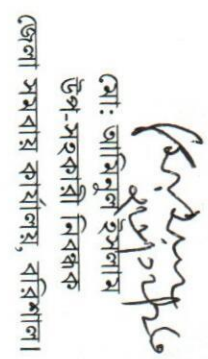 মো: আমিনুল ইসলাম
উপ-সহকারী নিবন্ধক
জেলা সমবায় কার্যালয়, বরিশাল।